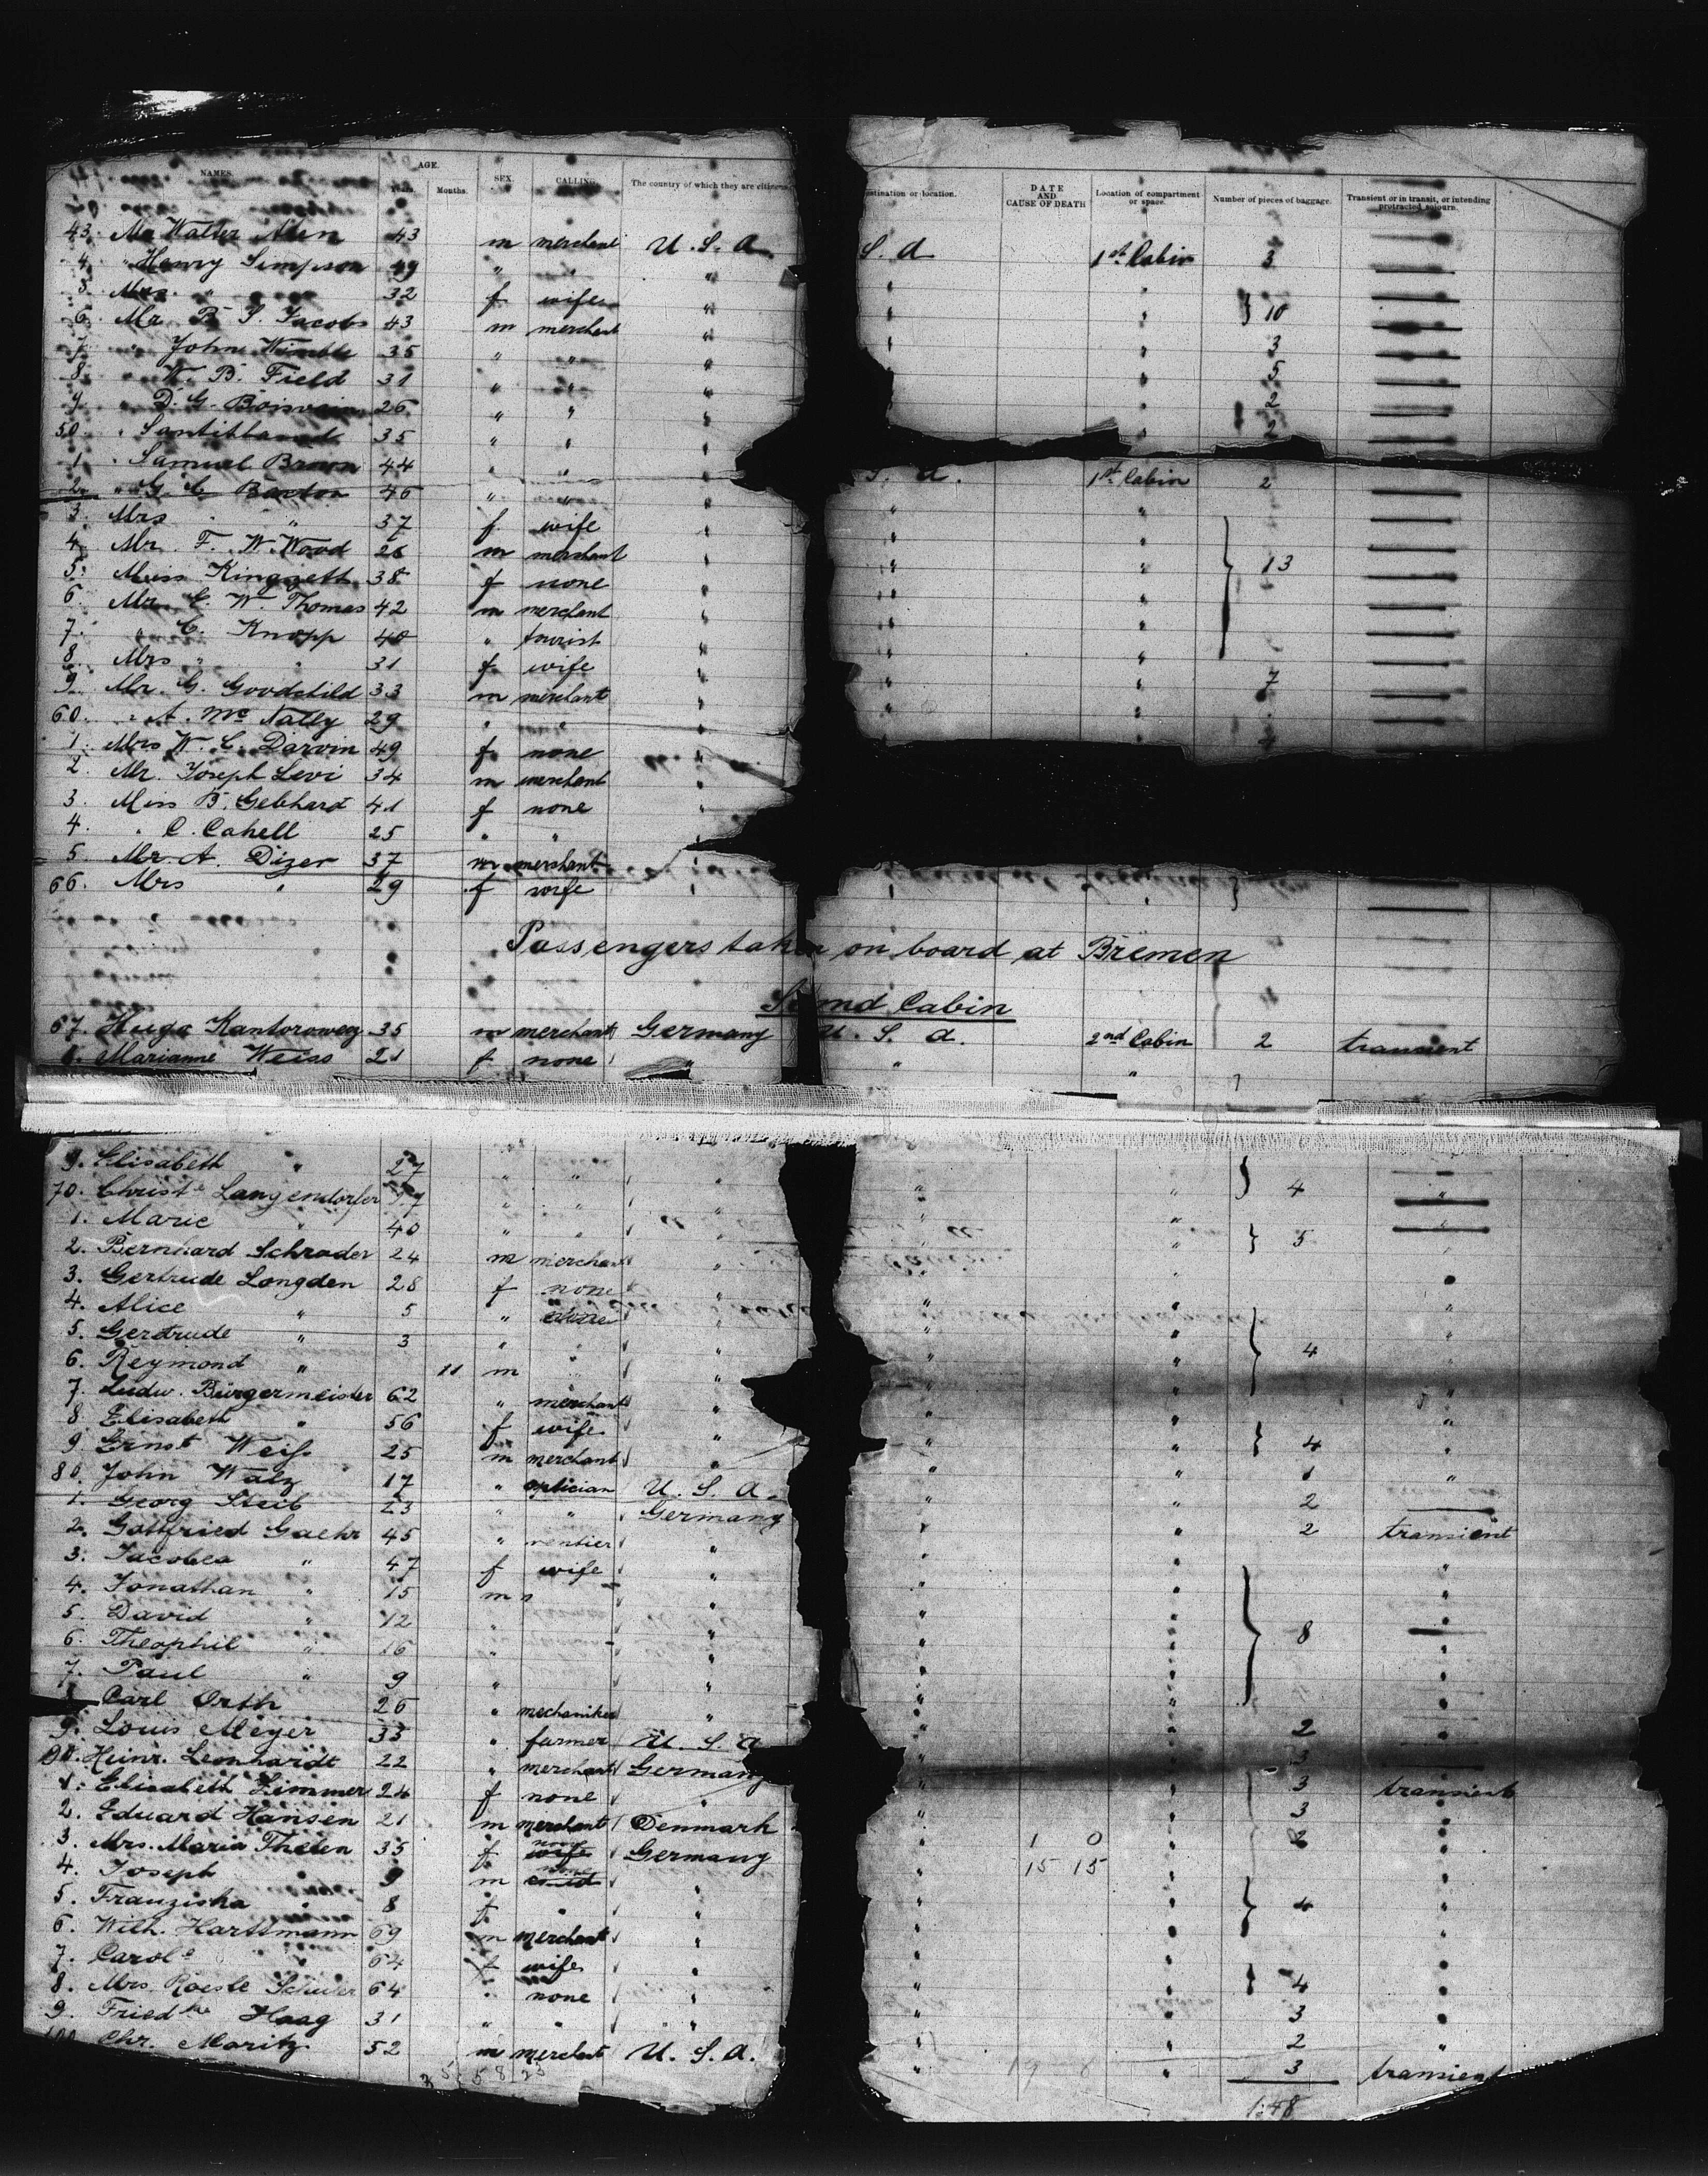 NAMES. AGE. Years. Months. SEX. CALLING. The country of which they are citizens. Destination or location. DATE AND CAUSE OF DEATH Location of compartment or space. Number of pieces of baggage. Transient or in transit, or intending protracted sojourn.
43. Mr Walter 43 m merchant U. S. A. S. A 1st Cabin 3
4. " Henry Simpson 49 " " " " "
5. Mrs " 32 f wife " " " } 10
6. Mr B. S. Jacobs 43 m merchant " " " 3
7. " John Wimble 35 " " " " " 5
8. " W. B. Field 31 " " " " 2
9. " D. G. Boisvain 26 " " " " 2
50. " 35 " " "
1. " Samuel Brown 44 " " " S. A. 1st Cabin 2
2. " G. C. Barton 46 " " " " "
3. Mrs " 37 f wife " " "
4. Mr. F. W. Wood 26 m merchant " " " } 13
5. Miss Kingzett 38 f none " " "
6. Mr. C. W. Thomas 42 m merchant " " "
7. " C. Knopp 40 " tourist " " "
8. Mrs " 31 f wife " " " 7
9. Mr. G. Goodchild 33 m merchant " " "
60. " A. Mc Nally 29 " " " " " 4
1. Mrs W. C. Darvin 49 f none "
2. Mr. Joseph Levi 34 m merchant "
3. Miss B. Gebhard 41 f none "
4. " C. Cahell 25 " " "
5. Mr. A. Dizer 37 m merchant
66. Mrs " 29 f wife " " " }
Passengers taken on board at Bremen
Second Cabin
67. Hugo Kantorowicz 35 m merchant Germany U. S. A. 2nd Cabin 2 transient
8. Marianne Weiss 21 f none " " "
9. Elisabeth " 27 " " " " " } 4 "
70. Christe Langendorfer " " " " "
1. Marie " 40 " " " " " } 5
2. Bernhard Schrader 24 m merchant " "
3. Gertrude Longden 28 f none " " " "
4. Alice " 5 " " " " "
5. Gertrude " 3 " " " " " } 4 "
6. Reymond " 11 m " " " "
7. Ludw. Bürgermeister 62 " merchant " " " "
8. Elisabeth " 56 f wife " " " } 4 "
9. Ernst Weiss 25 m merchant " " " 1 "
80. John Walz 17 " optician U. S. A. " " 2
1. Georg Steib 23 " " Germany " " 2 transient
2. Gottfried Gaehr 45 " rentier " " " "
3. Jacobea " 47 f wife " " " "
4. Jonathan " 15 m " " " "
5. David " 12 " " " " } 8
6. Theophil " 16 " " " " "
7. Paul " 9 " " " " "
8. Carl Orth 26 " mechaniker " " " 2 "
9. Louis Meyer 33 " farmer U. S. A " 3
90. Heinr. Leonhardt 22 " merchant Germany " " 3 transient
1. Elisabeth Zimmer 24 f none " " " 3 "
2. Eduard Hansen 21 m merchant Denmark " " 2 "
3. Mrs. Maria Thelen 35 f wife none Germany " " "
4. Joseph " 9 m child none " " " "
5. Franziska " 8 f " " " " } 4 "
6. Wilh. Harttmann 69 m merchant " " " "
7. Carole " 64 f wife " " " } 4 "
8. Mrs. Roesle 64 " none " " " 3 "
9. Friedke Haag 31 " " " " " 2 "
100 Chr. Moritz 52 m merchant U. S. A. " " 3 transient
148